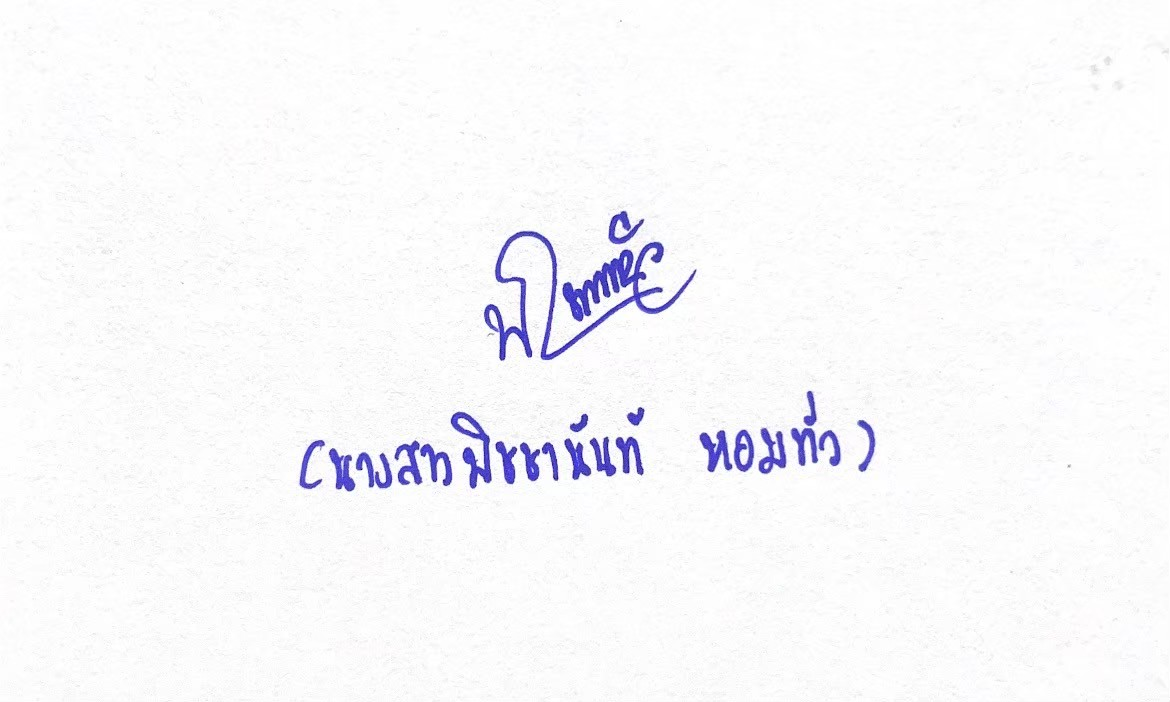 (นางสาวพิชชานันท์ หอมทั่ว)